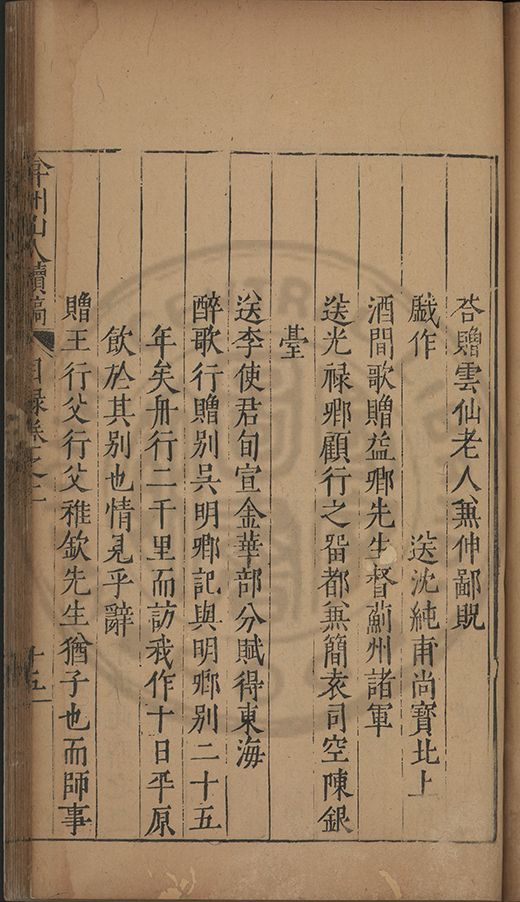 荅贈雲仙老人兼伸鄙貺
戯作　送沈純甫尚寳北上
酒間歌贈益卿先生督薊州諸軍
送光禄卿顧行之畱都兼簡袁司空陳銀
臺
送李使君旬宣金華部分賦得東海
醉歌行贈别吳明卿記與明卿别二十五
年矣舟行二千里而訪我作十日平原
飲於其别也情見乎辭
贈王行父行父稚欽先生猶子也而師事
弇州山人續稿　目録卷之二　十五